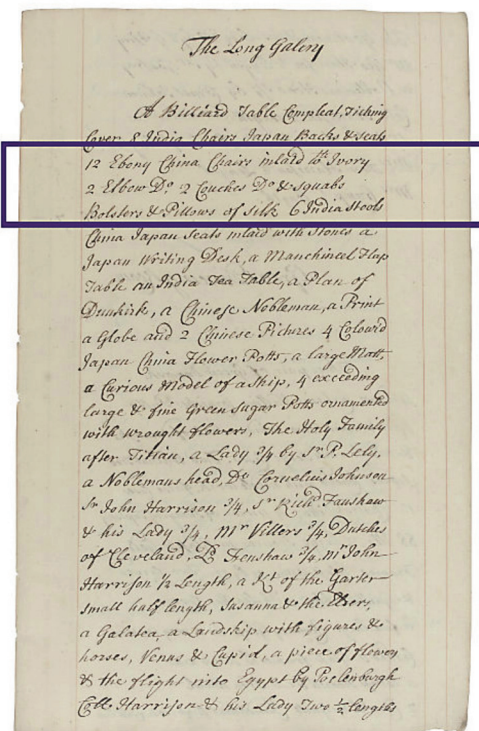 The Long Galery
A Billiard Table Compleat, Ticking
Cover 8 India Chairs Japan Backs & seats
12 Ebony China Chairs inlaid wth Ivory
2 Elbow Do 2 Couches Do & squabs
Bolsters & Pillows of silk 6 India stools
China Japan seats inlaid with stones a
Japan Writing Desk, a Manchineel Flap
Table an India Tea Table, a Plan of
Dunkirk, a Chinese Nobleman, a Print
a Globe and 2 Chinese Pictures 4 Colourd
Japan China Flower Potts, a large Matt,
a Curious Model of a Ship, 4 exceeding
large & fine Green Sugar Potts ornamented
with wrought flowers, The Holy Family
after Titian, a Lady 3/4 by Sr. P. Lely,
a Noblemans head, Do Cornelius Johnson
Sr John Harrison 3/4, Sr Richd Fanshaw
& his Lady 3/4, Mr Villers 3/4, Dutches
of Cleveland, Henshaw 3/4, Mr John
Harrison 1/2 Length, a Kt of the Garter
small half length, Susanna & the Elders,
a Galatea, a Landship with figures &
horses, Venus & Cupid, a piece of flowers
& the flight into Egypt by Poelenburgh
Coll. Harrison & his Lady Two 1/2 lengths